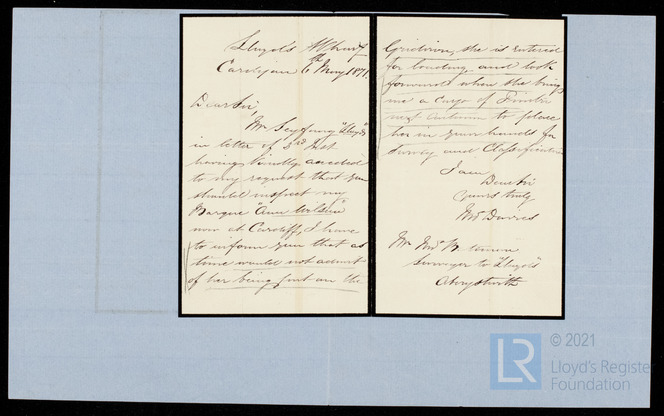 Lloyds Wharf
Cardigan 6th May 1871
Dear Sir,
Mr Seyfang "Lloyd's"
in letter of 3rd Inst
having kindly acceded
to my request that you
should inspect my
Barque "Ann Wilson"
now at Cardiff, I have
to inform you that as
time would not admit
of her being put on the
Gridiron, she is entered
for loading and look
forward when she brings
me a cargo of Timber
next Autumn to place
her in your hands for
Survey and Classification
I am
Dear Sir
Yours truly
Davies
Mr
Surveyor to "Lloyd's"
Aberystwith
© 2021
LR
Lloyd's Register
Foundation